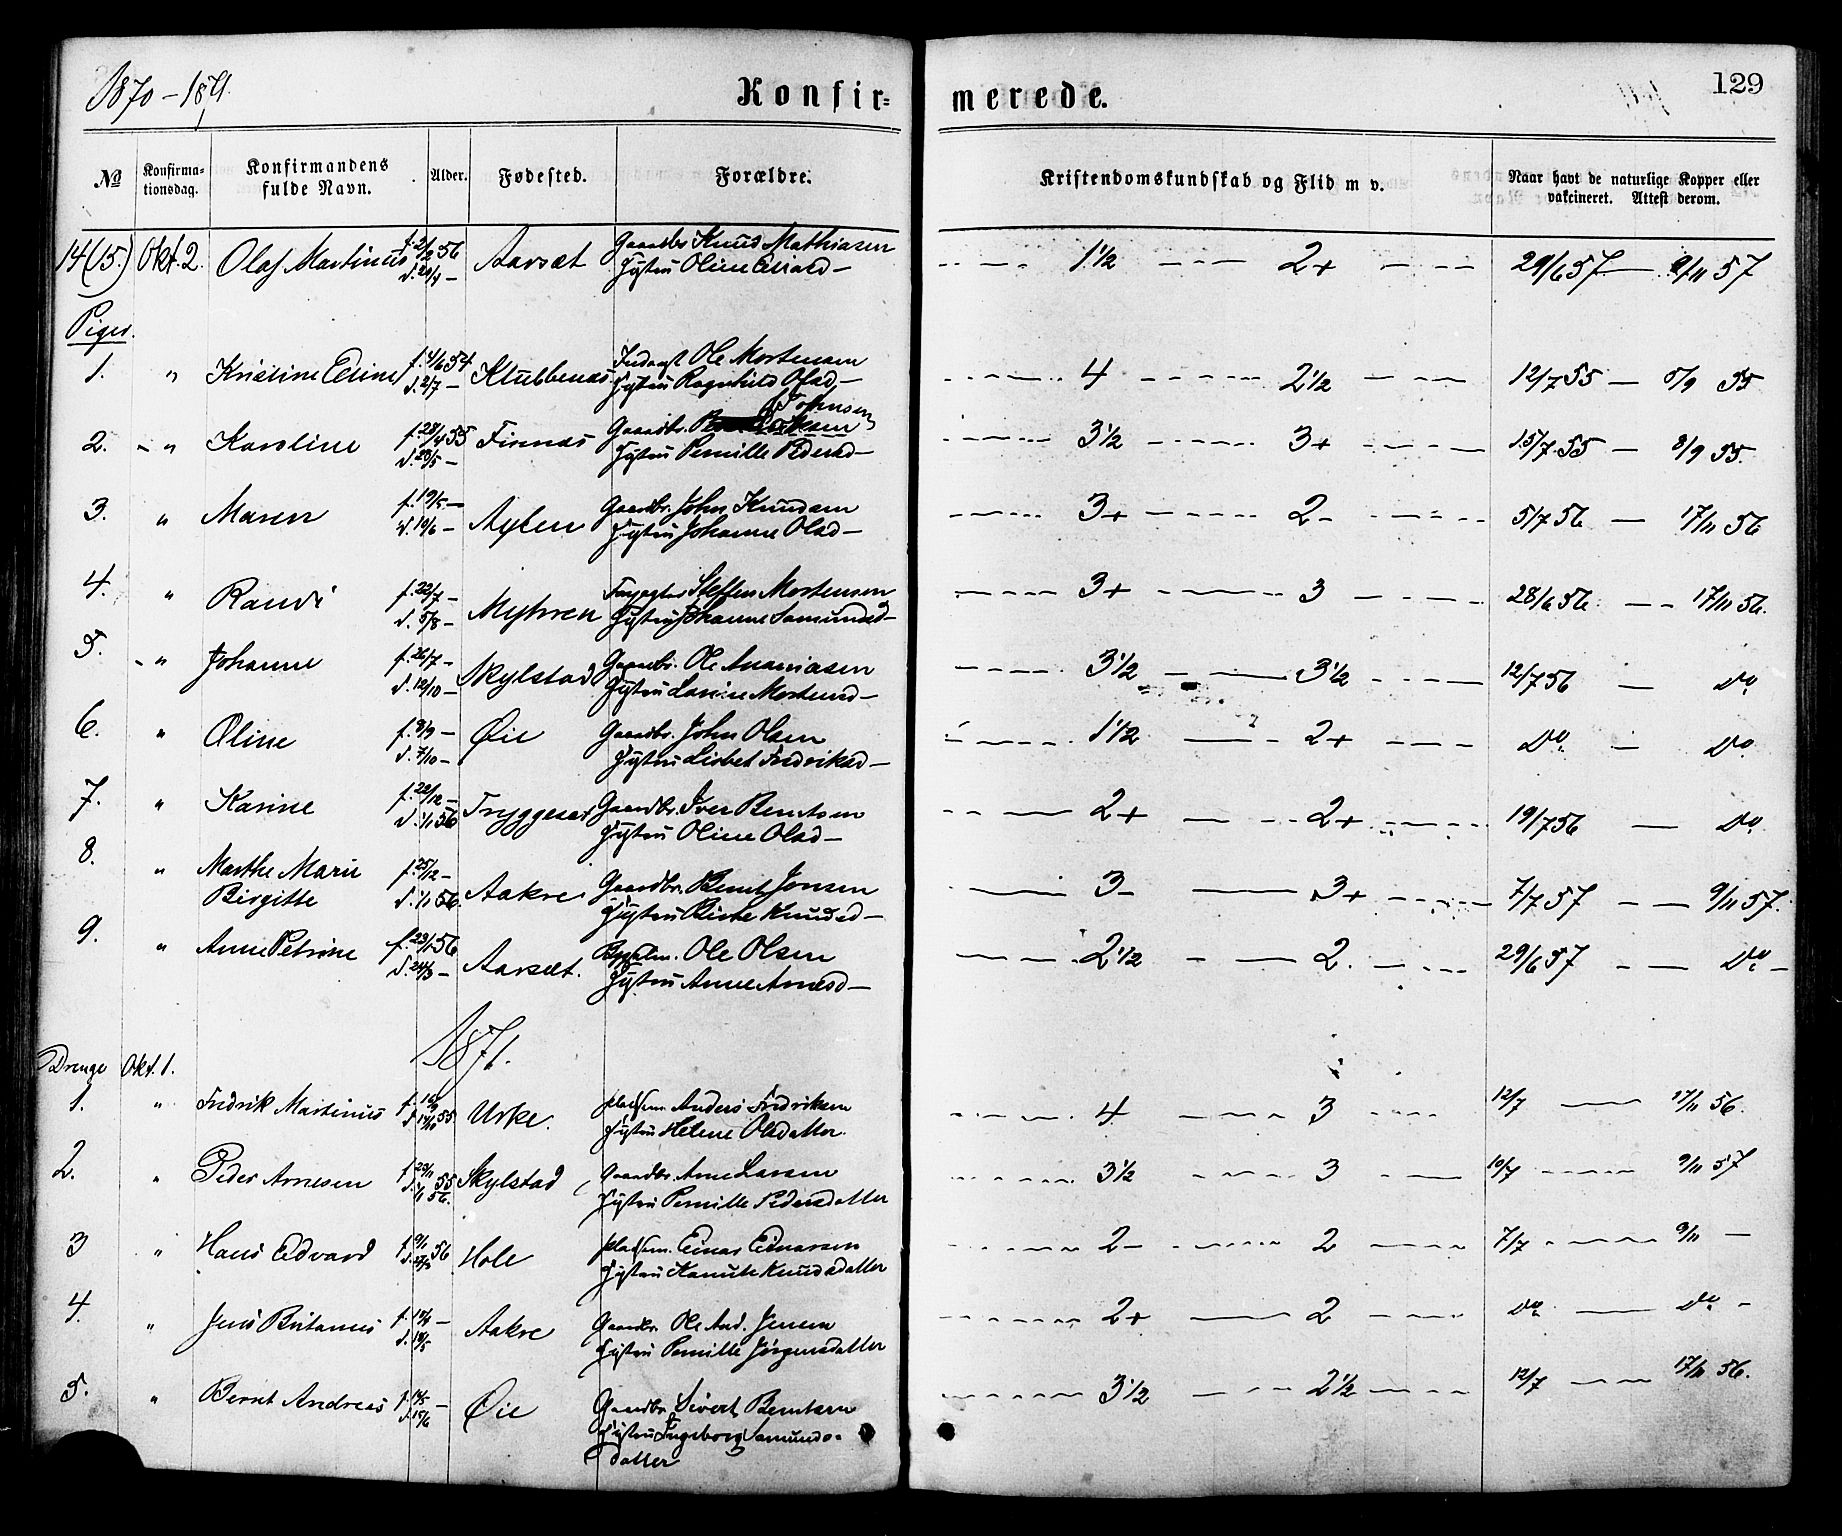 1870-1871.
Konfir=
merede.
129
No
Konfirma-
tionsdag.
Konfirmandens
fulde Navn.
Alder.
Fødested.
Forældre.
Kristendomskundskab og Flid m v.
Naar havt de naturlige Kopper eller
vakcineret. Attest derom.
14(15.) Okt. 2. Olaf Martinus f. 2/2 56 Aarsæt Gaardbr Knud Mathiasen 1½ 2+ 29/6 57 — 9/11 57
Hustru Oline
Piger.
1. " Kristine Eline f. 4/6 54 Klubbenæs Inderst Ole Mortensen 4 2½ 12/7 55 — 5/9 55
d. 2/7 — Hustru Ragnhild Olsd —
Johnsen
2. - " Karoline f. 29/4 55 Finnæs Gaardbr. 3½ 3+ 15/7 55 — 8/9 55.
d. 28/5 — Hustru Pernille Pedersd —
3. " Maren f. 19/5 — Aylen Gaardbr. John Knudsen 3+ 2- 5/7 56 — 17/11 56
d. 10/6 — Hustru Johanne Olsd —
4. " Randi f. 22/7 — Myhren Steffen Mortensen 3+ 3 28/6 56. — 17/11 56.
d. 5/8 — Hustru Johanne Samundsd —
5. - " Johanne f. 26/7 — Skylstad Gaardbr. Ole Ananiasen 3½ 3½ 12/7 56 — do
d. 12/10 — Hustru Lavine Mortensd —
6. " Oline f. 8/9 — Øie Gaardbr. John Olsen 1½ 2+ do — do
d. 7/10 — Hustru Lisbet Fredriksd —
7. " Karine f. 22/12 — Tryggeset Gaardbr. Iver Berntsen 2+ 2+ 19/7 56 — do
d. 1/1 56 Hustru Oline Olsd —
8. " Marthe Marie f. 25/12 — Aakre Gaardbr. Bernt Jonsen 3- 3+ 7/7 57 — 9/11 57.
Birgitte d. 1/1 56. Hustru Birte Knudsd —
9. " Anne Petrine f. 29/1 56 Aarsæt. Ole Olsen 2½ 2. 29/6 57 — do —
d. 24/3 — Hustru Anne Arnesd —
1871.
Drenge Okt. 1.
1. " Fredrik Martinus Urke. pladsm. Anders Fredriksen 4 3 12/7 — 17/11 56.
d. 14/10 55 Hustru Helene Olsdatter.
2. " Peder Arnesen f. 29/11 55 Skylstad Gaardbr. Arne Larsen 3½ 3 10/7 — 9/11 57
d. 1/1 56. Hustru Pernille Pedersdatter
3 " Hans Edvard f. 9/1 56 Hole pladsm. Einar Einarsen 2- 2 7/7 — 9/11 —
Hustru Kanute Knudsdatter
4. " Jens Bertanus Aakre Gaardbr. Ole And. Jensen 2+ 2 do — do -
d. 18/5 Hustru Pernille Jørgensdatter
5. " Bernt Andreas f. 14/5 — Øie Gaardbr. Sivert Berntsen 3½ 2½ 12/7 — 17/11 56.
d. 15/6 Hustru Ingeborg Samunds-
datter